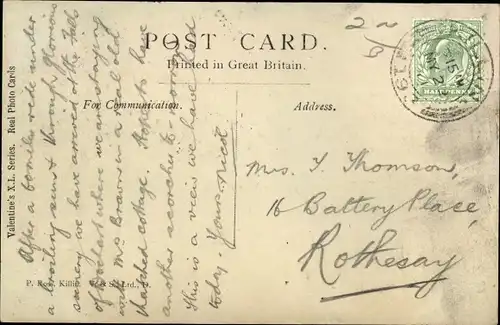 POST CARD.
Printed in Great Britain.
For Communication.
Address.
HALFPENNY
Valentine's X.L. Series. Real Photo Cards
After a 6 miles ride under
a broiling sun & through glorious
scenery we have arrived at the Falls
of Dochart where we are staying
with Mrs Brown in a real old
thatched cottage. Hope to have
another scorcher to-morrow
This is a view we have had
today. Yours
Mrs. T. Thomson,
16 Battery Place,
Rothesay